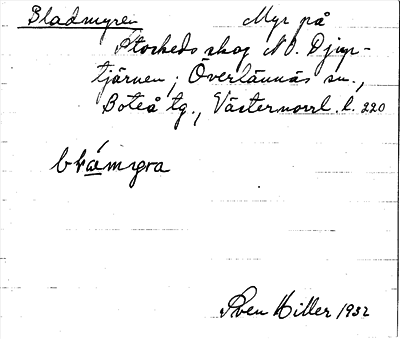 Bladmyren Myr på
Stockeds skog NO. Djup-
tjärnen, Överlännäs sn.,
Boteå tg., Västernorrl. l. 220
Sven Hiller 1932